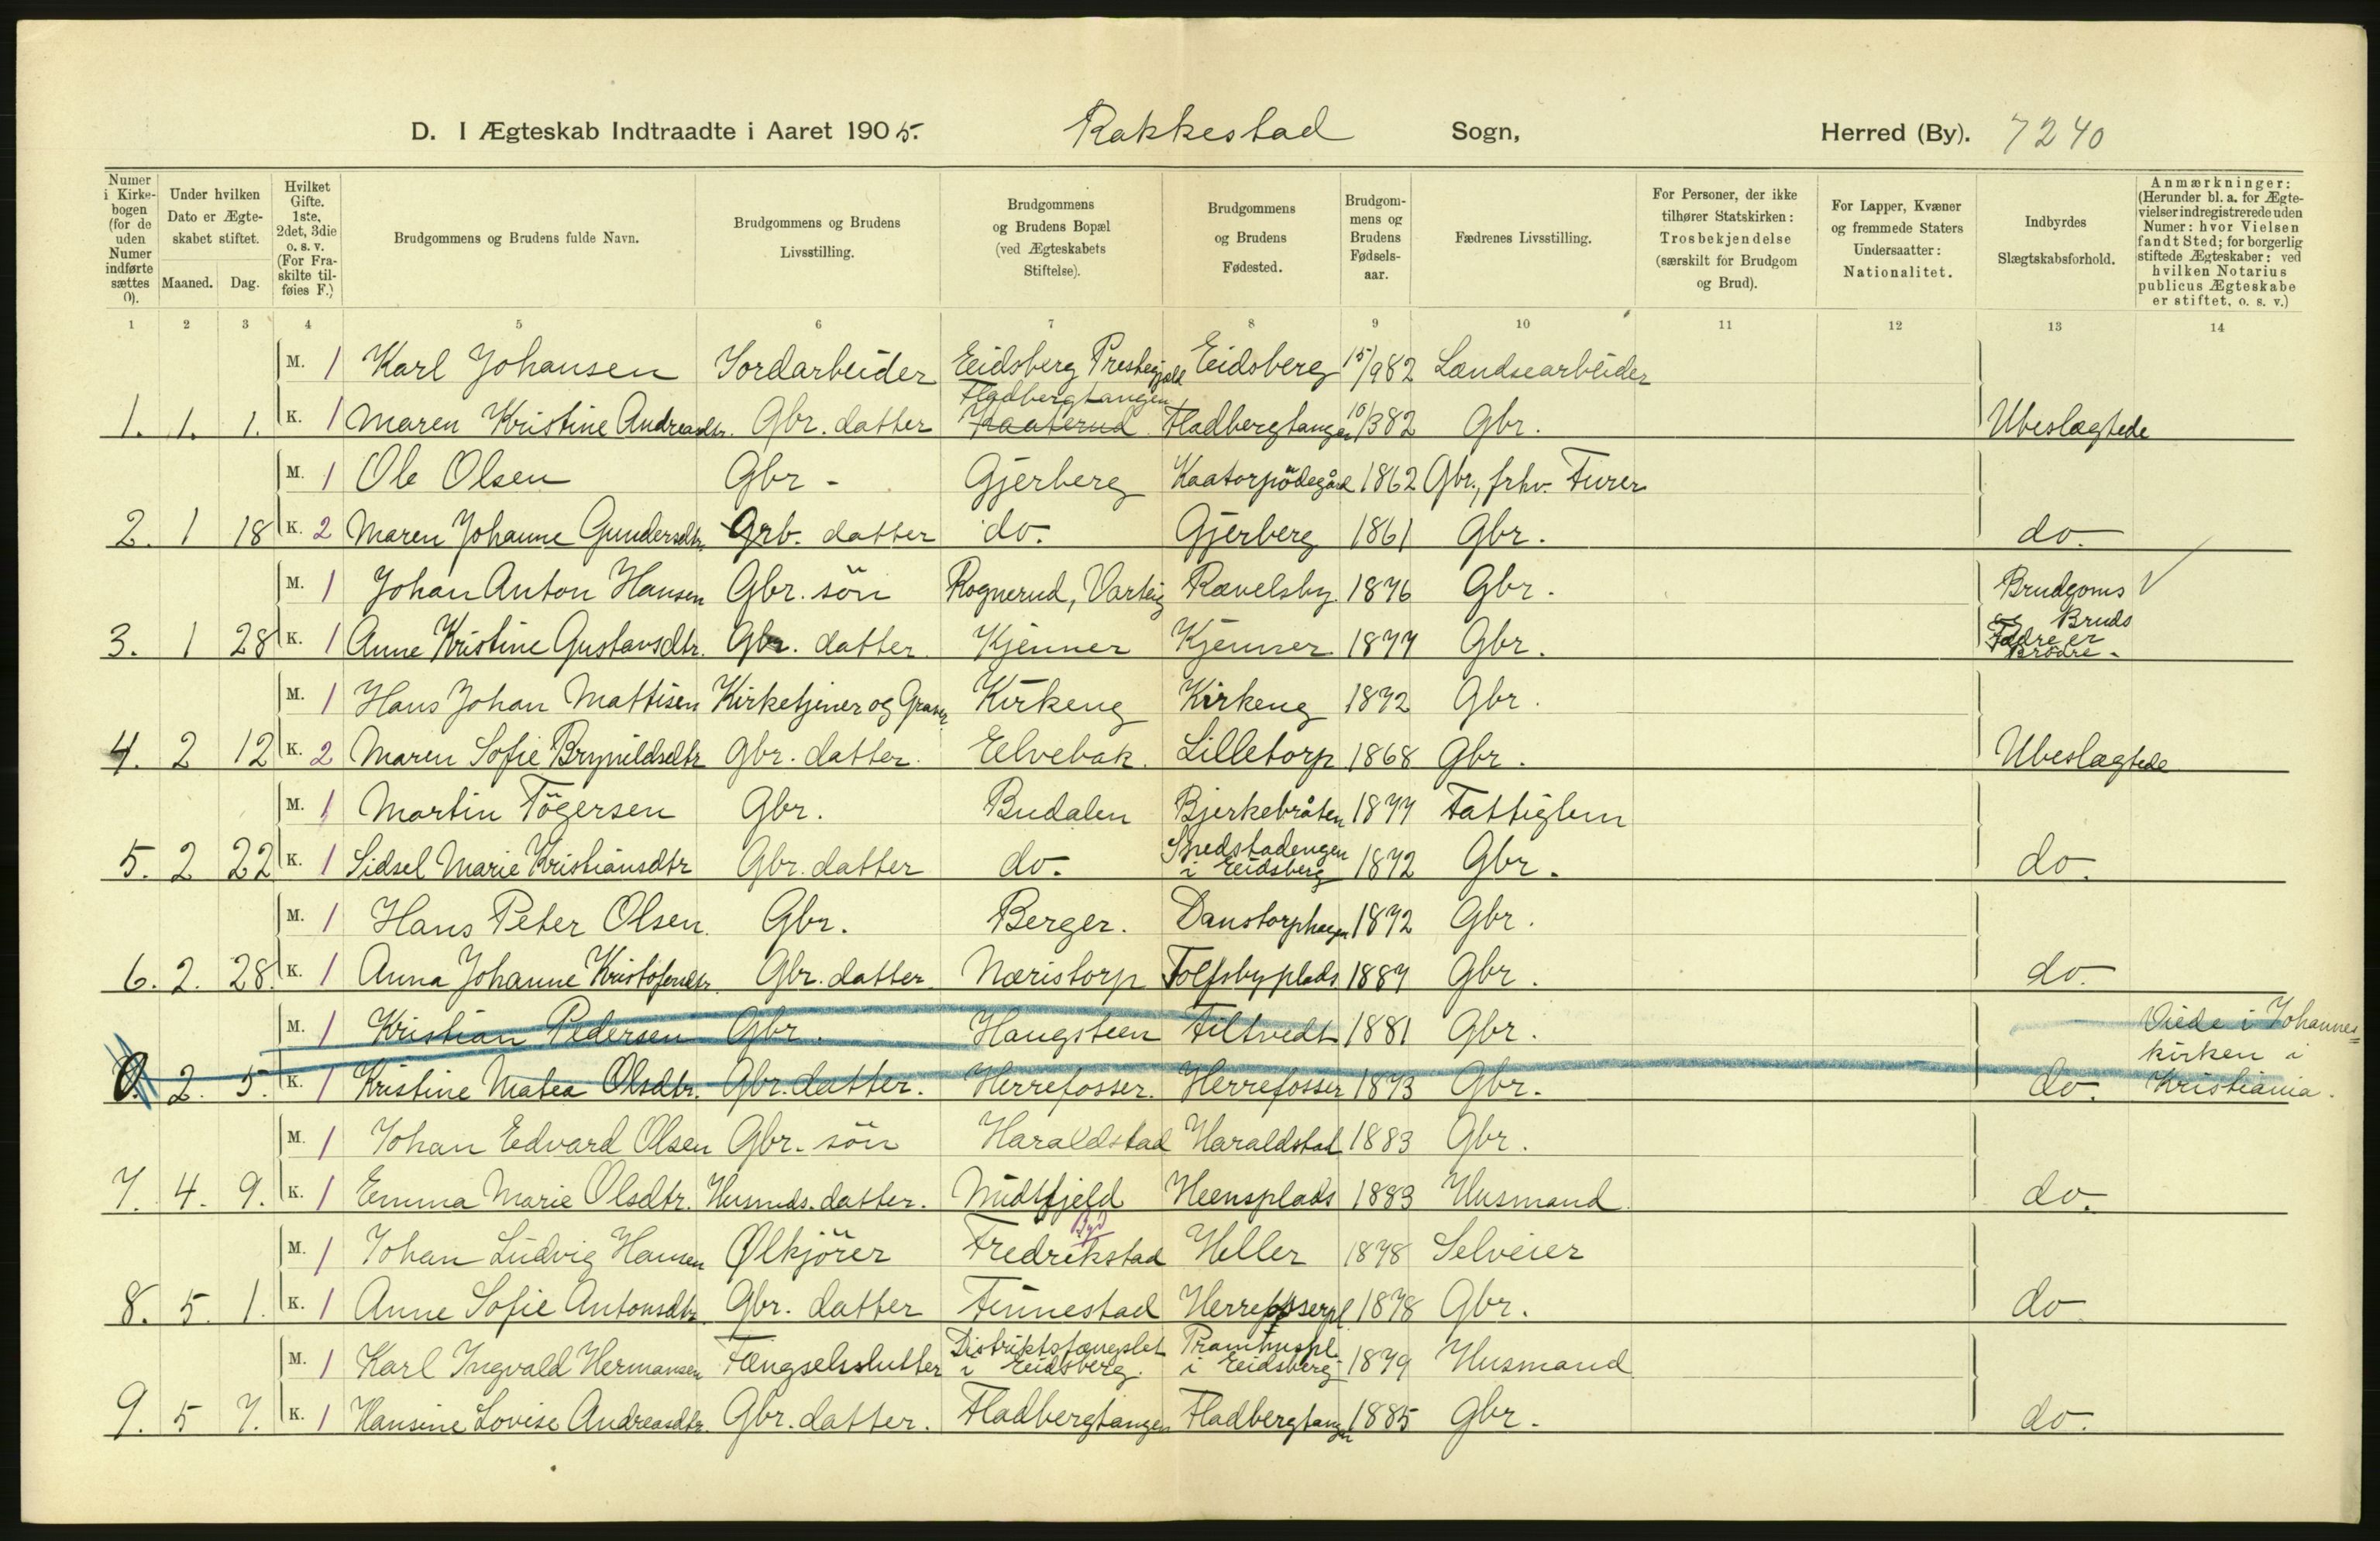 D. I Ægteskab Indtraadte i Aaret 1905. Rakkestad Sogn, Herred (By). 7240
Numer i Kirkebogen (for de uden Numer indførte sættes 0).
Under hvilken Dato er Ægteskabet stiftet.
Maaned. Dag.
Hvilket Gifte. 1ste, 2det, 3die o. s. v. (For Fraskilte tilføies F.)
Brudgommens og Brudens fulde Navn.
Brudgommens og Brudens Livsstilling.
Brudgommens og Brudens Bopæl (ved Ægteskabets Stiftelse).
Brudgommens og Brudens Fødested.
Brudgommens og Brudens Fødselsaar.
Fædrenes Livsstilling.
For Personer, der ikke tilhører Statskirken: Trosbekjendelse (særskilt for Brudgom og Brud).
For Lapper, Kvæner og fremmede Staters Undersaatter: Nationalitet.
Indbyrdes Slægtskabsforhold.
Anmærkninger: (Herunder bl. a. for Ægtevielser indregistrerede uden Numer: hvor Vielsen fandt Sted; for borgerlig stiftede Ægteskaber: ved hvilken Notarius publicus Ægteskabe er stiftet, o. s. v.)
1 2 3 4 5 6 7 8 9 10 11 12 13 14
M. 1 Karl Johansen Jordarbeider Eidsberg Prestegjæld Eidsberg 15/9 82 Landsearbeider
Fladbergtangen
1. 1. 1. K. 1 Maren Kristine Andreasdtr. Gbr. datter Fladbergtangen 10/3 82 Gbr. Ubeslægtede
M. 1 Ole Olsen Gbr - Gjerberg Kaatorpödegård 1862 Gbr., frhv. Furer
2. 1 18 K. 2 Maren Johanne Gundersdtr. Grb. datter do. Gjerberg 1861 Gbr. do.
M. 1 Johan Anton Hansen Gbr. sön Rognerud, Varteig Rævelsby 1876 Gbr. Brudgoms V
3. 1 28 K. 1 Anne Kristine Gustavsdtr. Gbr. datter Kjenner Kjenner 1877 Gbr. og Bruds Fædre er Brødre.
M. 1 Hans Johan Mattisen Kirketjener og Graver Kirkeng Kirkeng 1872 Gbr.
4. 2 12 K. 2 Maren Sofie Brynildsdtr Gbr. datter. Elvebak. Lilletorp 1868 Gbr. Ubeslægtede
M. 1 Martin Tögersen Gbr. Budalen Bjerkebråten 1877 Fattiglem
5. 2 22 K. 1 Sidsel Marie Kristiansdtr Gbr. datter do. i Eidsberg 1872 Gbr. do.
M. 1 Hans Peter Olsen. Gbr. Berger. Danstorphagen 1872 Gbr.
6. 2. 28. K. 1 Anna Johanne Kristofersdtr. Gbr. datter. Næristorp Tolfsbyplads 1887 Gbr. do.
M. 1 Kristian Pedersen Gbr. Haugsteen Filtvedt 1881 Gbr. Viede i Johannes=
kirken i
0. 2. 5. K. 1 Kristine Matea Olsdtr. Gbr. datter. Herrefosser. Herrefosser 1873 Gbr. do. Kristiania.
M. 1 Johan Edvard Olsen Gbr. sön Haraldstad Haraldstad 1883 Gbr.
7. 4. 9. K. 1 Emma Marie Olsdtr. Husmds. datter. Midtfjeld Heensplads 1883 Husmand. do.
M. 1 Johan Ludvig Hansen Ølkjörer Fredrikstad Heller 1878 Selveier
8. 5. 1. K. 1 Anne Sofie Antonsdtr. Gbr. datter Finnestad Herrefosserpl 1878 Gbr. do
M. 1 Karl Ingvald Hermansen Fængselsslutter Distriktsfængslet i Eidsberg. i Eidsberg 1879 Husmand
9. 5 7. K. 1 Hansine Lovise Andreasdtr. Gbr. datter. Fladbergtangen Fladbergtangen 1885 Gbr. do.